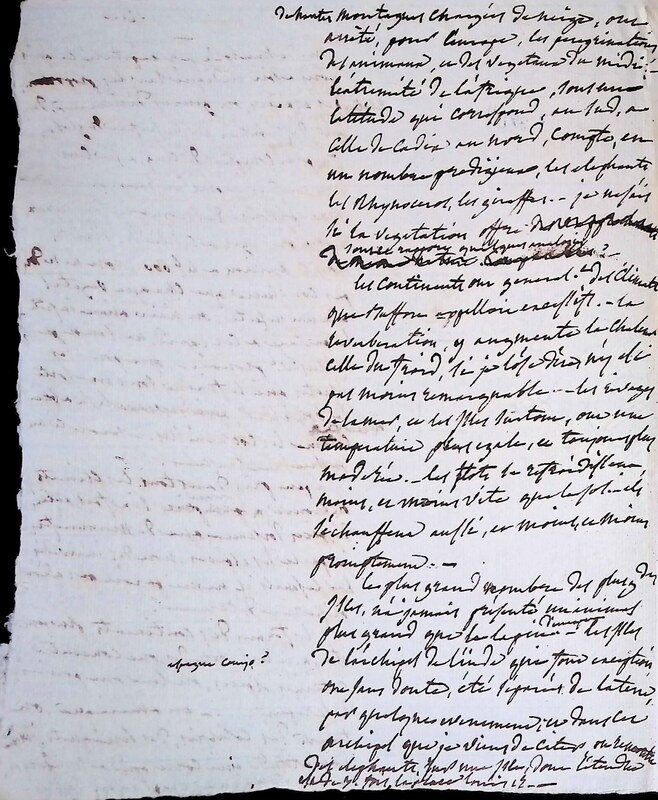 de hautes montagnes chargées de neige, ont
arrêté, pour l'europe, les peregrinations
des animaux, et des vegetaux du midi.—
l'extremité de l'afrique, sous une
latitude qui correspond, au sud, a
celle de Cadix au nord, compte, en
un nombre prodigieux, les elephants
les Rhynoceros, les giraffes.. je ne sais
si la vegetation offre
sous ce rapport quelques analogies?—
les continents ont general.t des climats
que Buffon appelloit excessifs.— la
reverberation, y augmente la chaleur
celle du froid, si je l'ose dire, n'y est
pas moins remarquable.— les rivages
de la mer, et les isles surtout, ont une
temperature plus egale, et toujours plus
moderée.— les flots se refroidissent
moins, et moins vite que le sol.— ils
s'échauffent aussi, et moins, et moins
promptement.—
le plus grand nombre des plus gdes
Isles, n'a jamais presenté un animal
plus grand que le — les Isles
de l'archipel de l'inde qui font exception
ont sans doute, été separées de la terre,
par quelques evenemens; et dans cet
archipel que je viens de citer, on rencontre
des elephants, sur une isle, dont l'étendue